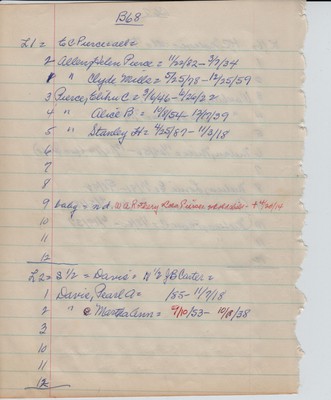 B68
L1 = E C Pierce
2 Allen, Helen Pierce = 11/22/82 - 3/7/34
" Clyde Mills = 5/25/78 - 12/25/59
3 Pierce, Elihu C. = 3/6/46 - 6/26/22
4 " Alice B. = 10/9/54 - 12/7/39
5 " Stanley H = 4/25/87 - 11/3/18
6
7
8
9 baby = n.d. + 4/20/14
10
11
12
L2 = S 1/2 = Davis = N 1/2 J B Carter =
1 Davis, Pearl A = /85 - 11/7/18
2 " Martha Ann = 9/10/53 - 10/9/38
3
10
11
12